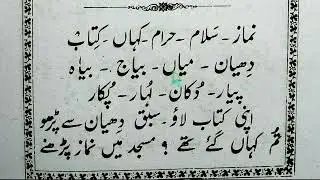 نماز ۔ سَلام ۔ حرام ۔ کہاں ۔ کِتابْ
دِھیان ۔ میاں ۔ بیاج ۔ بیاہ
پیار ۔ دُکان ۔ اُبار ۔ پُکار
اپنی کتاب لاؤ ۔ سبق دِھیان سے پڑھو
تُم کہاں گئے تھے ؟ مسجد میں نماز پڑھنے